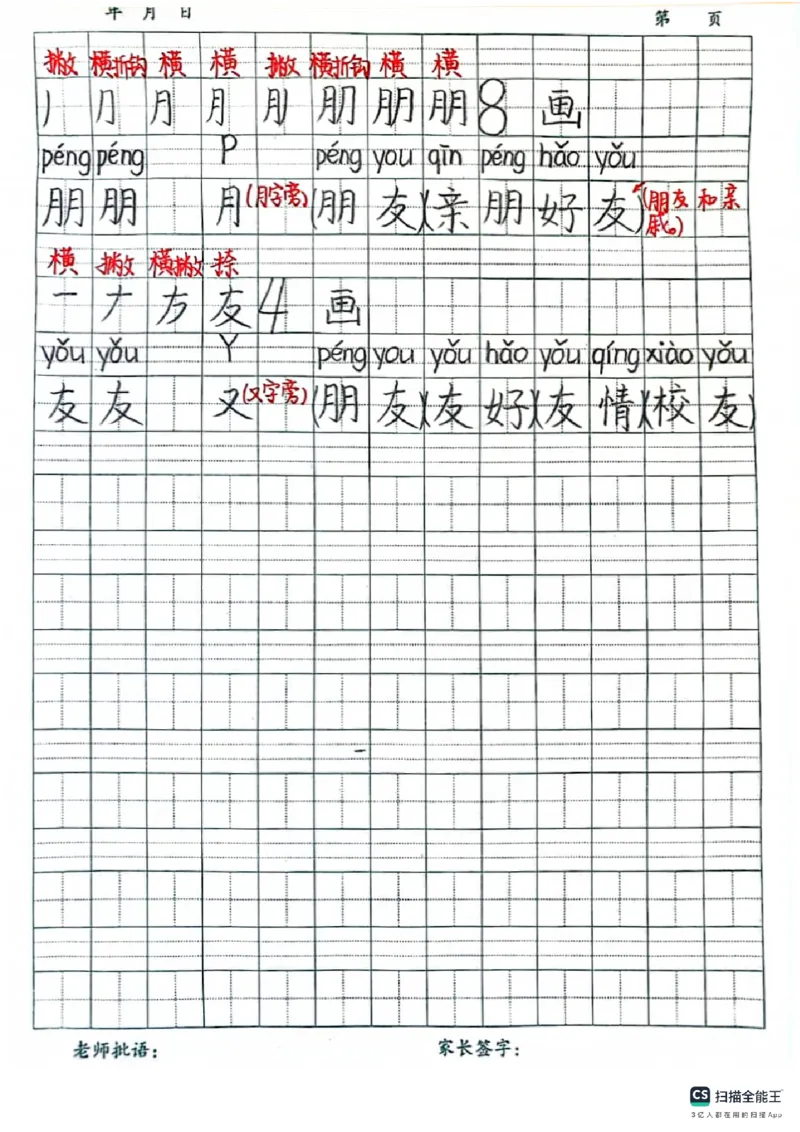 年 月 日 第 页
撇 横折钩 横 横 撇 横折钩 横 横
丿 ⺆ 月 月 朋 朋 8 画
péng péng P péng you qīn péng hǎo yǒu
朋 朋 月(月字旁) (朋 友)(亲 朋 好 友) (朋友和亲戚。)
横 撇 横撇 捺
一 ナ 方 友 4 画
yǒu yǒu Y péng you yǒu hǎo yǒu qíng xiào yǒu
友 友 又(又字旁) (朋 友)(友 好)(友 情)(校 友)
老师批语: 家长签字:
CS 扫描全能王
3亿人都在用的扫描App